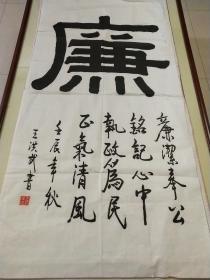 廉
廉潔奉公
銘記心中
執政爲民
正氣清風
壬辰年秋
王洪武書